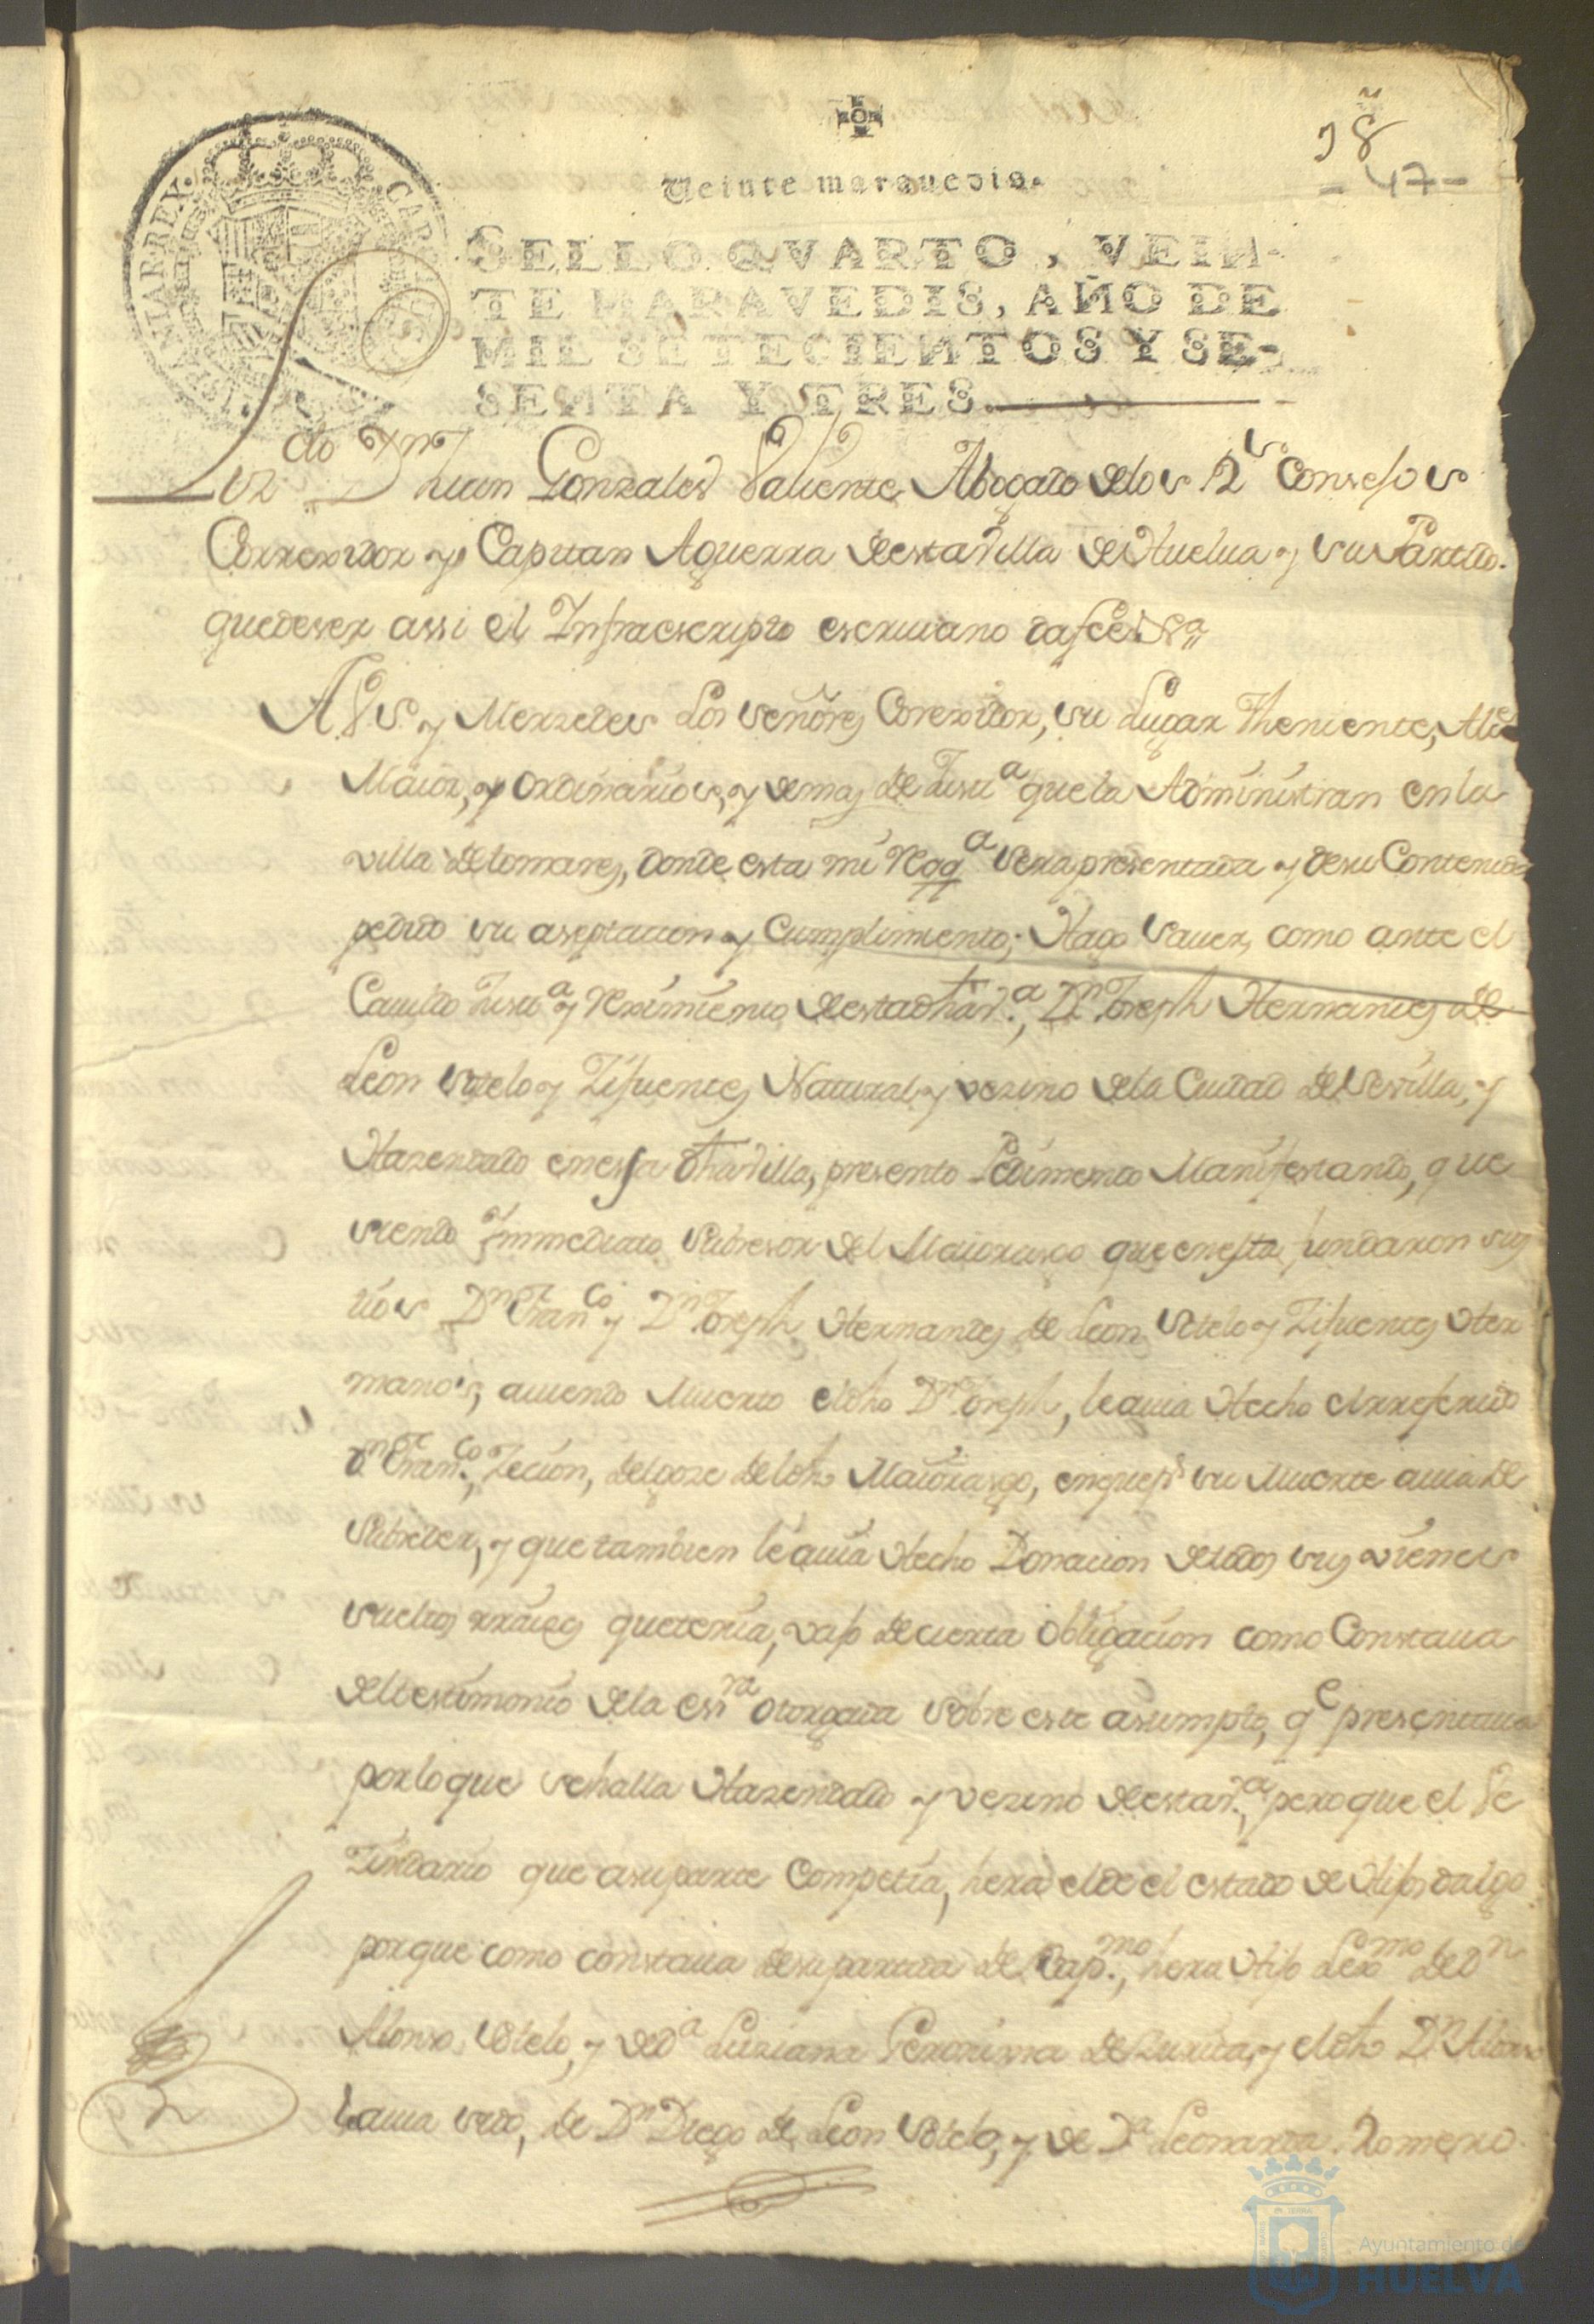 Veinte marauedis.
SELLO QVARTO, VEIN-
TE MARAVEDIS, AÑO DE
MIL SETECIENTOS Y SE-
SENTA Y TRES.
18
- 47 -
HISPANIAR. REX. CAR
Lizdo Dn Juan Gonzales Valiente Abogado delos Rs Consejos
Correxidor y Capitan Aguerra destavilla de Huelua y su Partido.
quedeser assi el Infraescripto escriuano dafee
A VS. y Merzedes Los señores Corexidor, su Lugar Theniente, Alcde
Maior, y Ordinarios, y demas de Justa que la Administran en la
villa de tomares, donde esta mi Reqa sera presentada y desu Contenido
pedido su aseptacion y Cumplimiento; Hago sauer, como ante el
Cauildo Justa y Reximiento destadha va., Dn Joseph Hernandes de
Leon Sotelo y Zifuentes Natural y vezino dela Ciudad de Sevilla, y
Hazendado enessa dhavilla, presento Pedimento Manifestando, que
siendo Immediato Subsesor del Maiorasgo que enesta fundaron sus
tios Dn Franco y Dn Joseph Hernandes de Leon Sotelo y Zifuentes Her
manos, auiendo Muerto eldho Dn Joseph, le auia Hecho elrreferido
Dn Franco., Zecion, delgoze deldho Maiorasgo, enquepr su Muerte auia de
Subseder, y que tambien le auia Hecho Donacion detodos sus vienes
sueltos rraises que tenia, vajo de cierta obligacion como Constaua
deltestimonio dela essra otorgada sobre este asumpto, qe presentaua
porloque sehalla Hazendado y vezino destava., pero que el Ve
zindario que asuparte Competia, hera elde el estado de Hijosdalgo
porque como constaua desupartida de Bapmo., hera Hijo Lexmo de Dn
Alonso Sotelo, y de Da Luziana Geronima de Zurita, y eldho Dn Alonso
lo auia sido, de Dn Diego de Leon Sotelo, y de Da Leonarda Romero
2
Ayuntamiento de
HUELVA